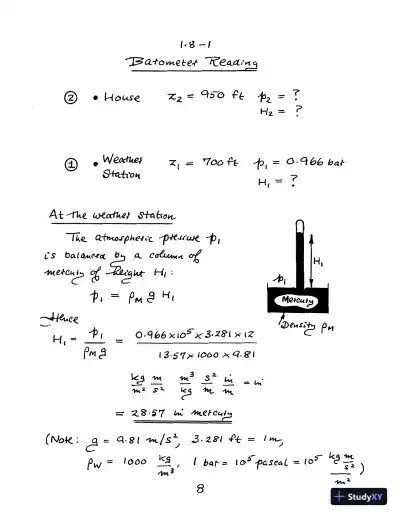 1.8-1
Barometer Reading
② • House z₂ = 950 ft p₂ = ?
H₂ = ?
① • Weather Station z₁ = 700 ft p₁ = 0.966 bar
H₁ = ?
At the weather station
The atmospheric pressure p₁
is balanced by a column of
mercury of height H₁:
p₁ = ρ_M g H₁
H₁
p₁
Mercury
Density ρ_M
Hence
H₁ = p₁ / ρ_M g = 0.966×10⁵ × 3.281 × 12 / 13.57 × 1000 × 9.81
kg/m² m/s² m³/kg s²/m in/m = in
= 28.57 in mercury
(Note: g = 9.81 m/s², 3.281 ft = 1m,
ρ_W = 1000 kg/m³, 1 bar = 10⁵ pascal = 10⁵ kg m/s² / m²)
8
+ StudyXY